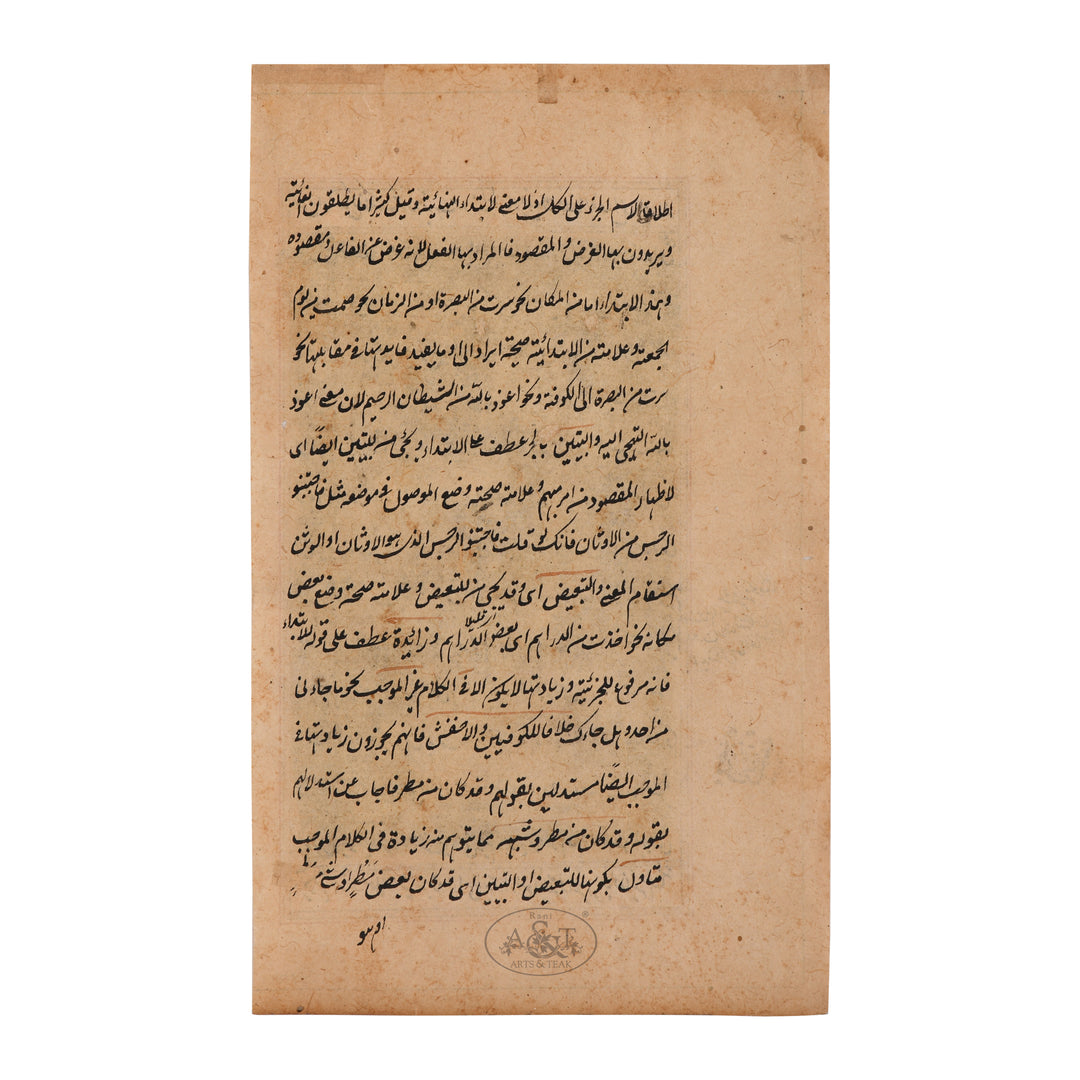 اطلاقا لاسم الجزء على الكل اذ لا معنى لابتداء النهائية وقيل كثيرا ما يطلقون الغاية
ويريدون بها الغرض والمقصود فالمراد بها الفعل لانه غرض عن الفاعل ومقصوده
وهذا الابتداء اما من المكان نحو سرت من البصرة او من الزمان نحو صمت من يوم
الجمعة وعلامة من الابتدائية صحة ايراد الى او ما يفيد فايدتها في مقابلتها نحو
سرت من البصرة الى الكوفة ونحو اعوذ بالله من الشيطان الرجيم لان معنى اعوذ
بالله التجى اليه والتبيين بالجر عطف على الابتداء ويجئ من للتبيين ايضا اى
لاظهار المقصود من امر مبهم وعلامته صحة وضع الموصول في موضعه مثل فاجتنبو
الرجس من الاوثان فانك لو قلت فاجتنبو الرجس الذى هو الاوثان او الوثن
استقام المعنى والتبعيض اى وقد يجى من للتبعيض وعلامته صحة وضع بعض
مكانه نحو اخذت من الدراهم اى بعض الدراهم وزائدة عطف على قوله للابتداء
فانه مرفوع للخبرية وزيادتها لا يكون الا في الكلام غير الموجب نحو ما جاءنى
من احد وهل جاءك خلافا للكوفيين والاخفش فانهم يجوزون زيادتها في
الموجب ايضا مستدلين بقولهم وقد كان من مطر فاجاب عن استدلالهم
بقوله وقد كان من مطر وشبهه مما يتوهم منه زيادة في الكلام الموجب
متاول بكونها للتبعيض او التبيين اى قد كان بعض مطر او شئ
Rani
A&T
®
ARTS & TEAK